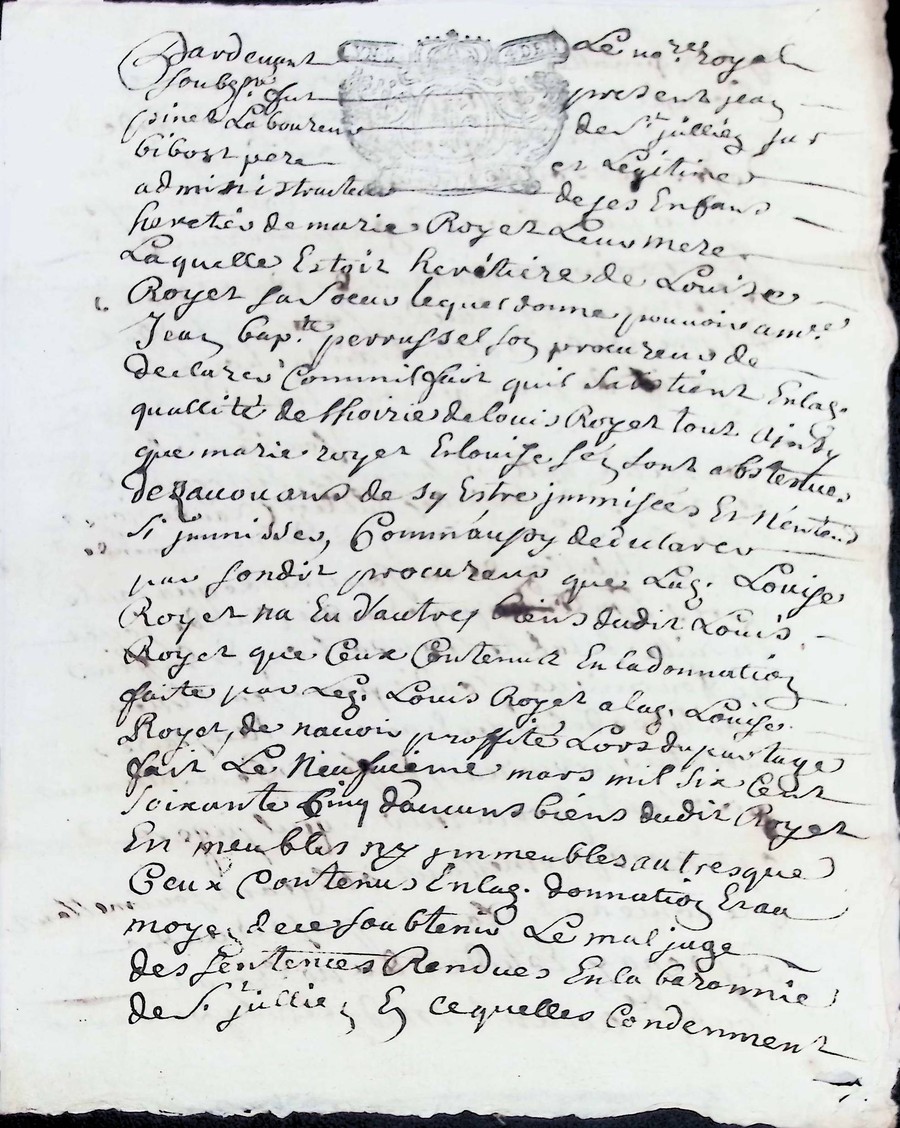 Pardevant Le no.re royal
soubz.né fut present jean
pinet Laboureur de S.t jullien sur
bibost pere et Légitime
administrateur de ses Enfans
heretiés de marie Royet Leur mere
Laquelle Estoit heretiére de Louise
Royet sa soeur lequel donne pouvoir a m.re
Jean bap.te perrussel son procureur de
declarer Comm'il fait quil sabstient En lad.
quallité de lhoirie de louis Royet tout ainsy
que marie royet Et louise s'en sont abstenues
de sy Estre jmmisées Et n'entend
s'i jmmisser, Comm'aussy de declarer
par sondit procureur que Lad. Louise
Royet na Eu d'autres biens dudit Louis
Royet que Ceux Contenut En la donnation
faite par Led. Louis Royet a lad. Louise
Royet, de navoir proffité Lors du partage
fait Le Neufvième mars mil six Cent
soixante Cinq d'aucuns biens dudit Royet
En meubles ny jmmeubles autres que
Ceux Contenus En lad. donnation Et au
moyen de ce soubtenir Le mal juge
des sentences Rendues En la baronnie
de S.t jullien En lequelles Condemnent